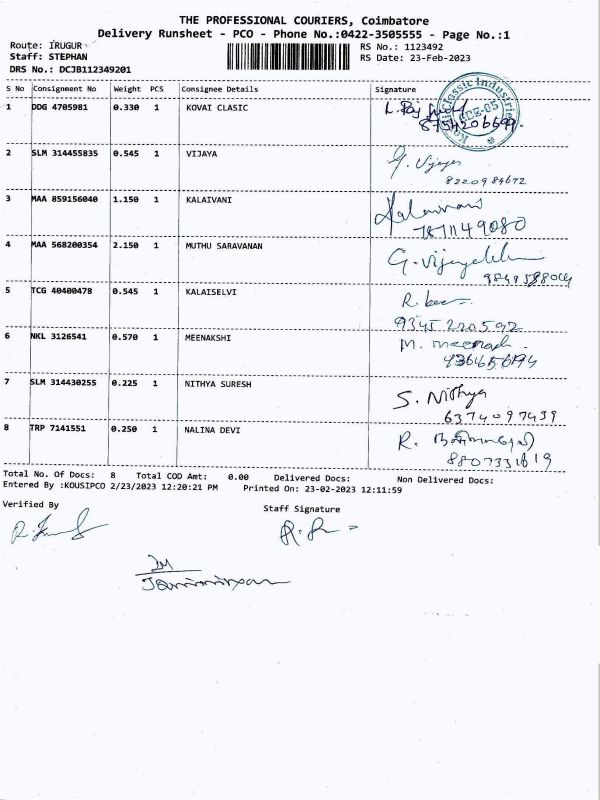 THE PROFESSIONAL COURIERS, Coimbatore
Delivery Runsheet - PCO - Phone No.:0422-3505555 - Page No.:1
Route: IRUGUR
RS No.: 1123492
Staff: STEPHAN
RS Date: 23-Feb-2023
DRS No.: DCJB112349201
S No Consignment No Weight PCS Consignee Details Signature
1 DDG 4705981 0.330 1 KOVAI CLASIC
8754206699
2 SLM 314455835 0.545 1 VIJAYA G. Vijaya
8220984672
3 MAA 859156040 1.150 1 KALAIVANI Kalaivani
4 MAA 568200354 2.150 1 MUTHU SARAVANAN
5 TCG 40400478 0.545 1 KALAISELVI
9345220592
6 NKL 3126541 0.570 1 MEENAKSHI M. meenach
7 SLM 314430255 0.225 1 NITHYA SURESH S. Nithya
6374097439
8 TRP 7141551 0.250 1 NALINA DEVI
8807331619
Total No. Of Docs: 8 Total COD Amt: 0.00 Delivered Docs: Non Delivered Docs:
Entered By :KOUSIPCO 2/23/2023 12:20:21 PM Printed On: 23-02-2023 12:11:59
Verified By
Staff Signature